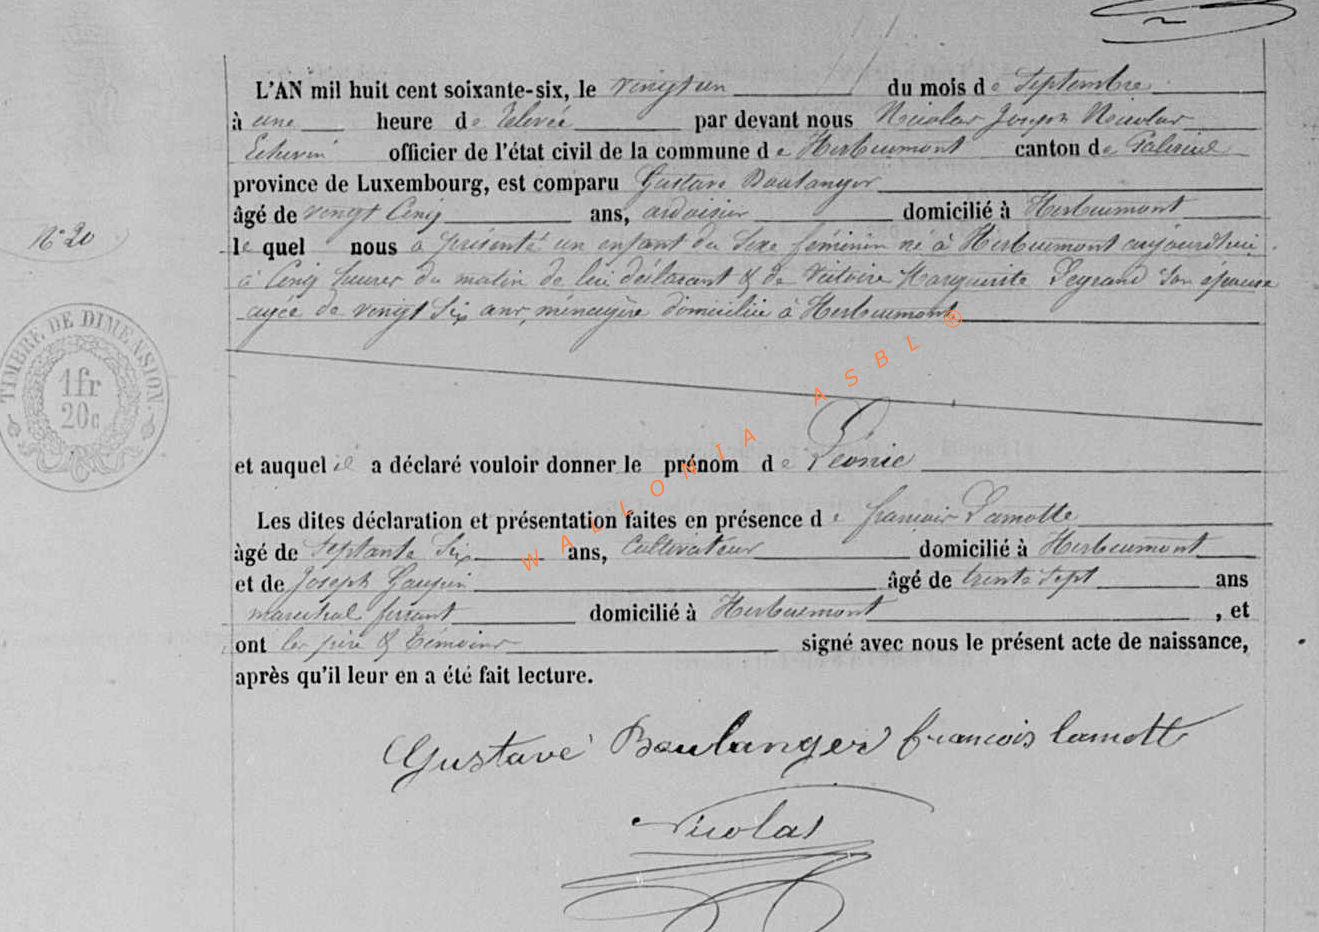 L'AN mil huit cent soixante-six, le vingt un du mois de Septembre
à une heure de relevée par devant nous Nicolas Joseph Nicolas
Echevin officier de l'état civil de la commune de Herbeumont canton de Paliseul
province de Luxembourg, est comparu Gustave Boulanger
âgé de vingt Cinq ans, ardoisier domicilié à Herbeumont
N° 20
le quel nous a présenté un enfant du Sexe féminin né à Herbeumont aujourd'hui
à Cinq heures du matin de lui déclarant & de Victoire Marguerite Legrand Son épouse
agée de vingt Six ans, ménagère domiciliée à Herbeumont
TIMBRE DE DIMENSION
1fr
20c
et auquel il a déclaré vouloir donner le prénom de Léonie
Les dites déclaration et présentation faites en présence de françois Lamotte
âgé de Septante Six ans, Cultivateur domicilié à Herbeumont
et de Joseph âgé de trente Sept ans
marechal ferrant domicilié à Herbeumont , et
ont les père & temoins signé avec nous le présent acte de naissance,
après qu'il leur en a été fait lecture.
Gustave Boulanger francois lamott
Nicolas
WALLONIA ASBL ®